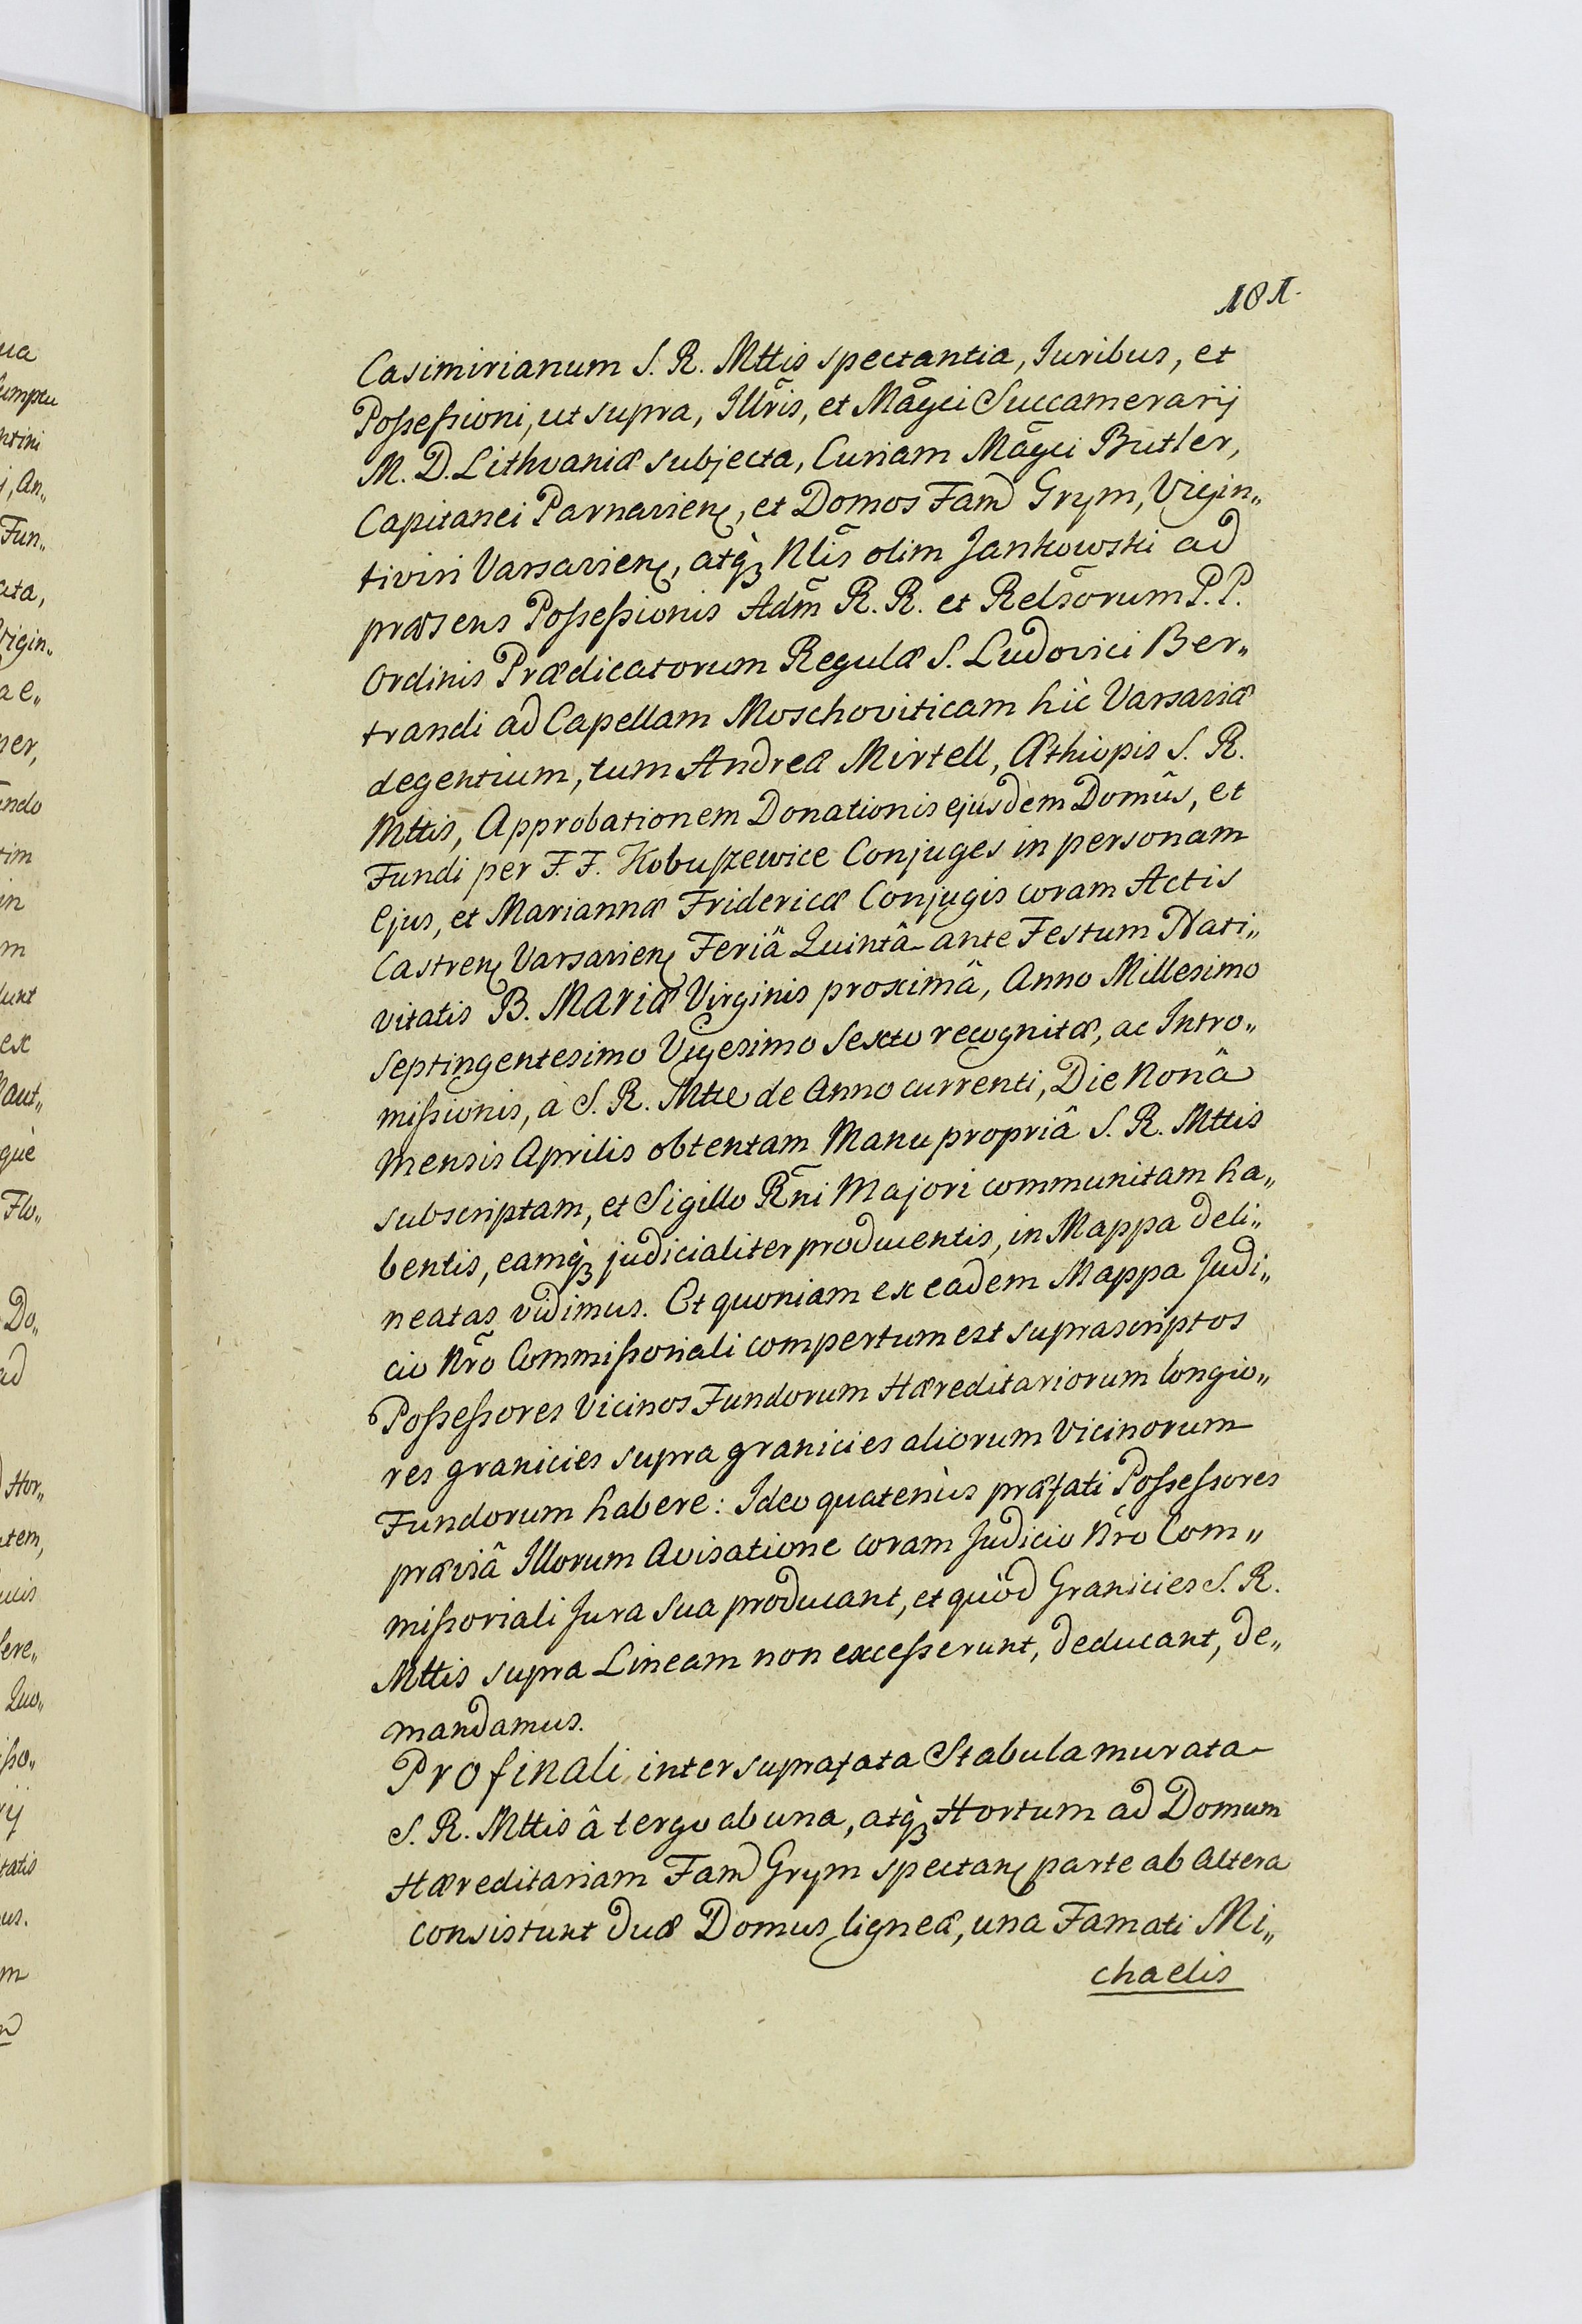 181.
Casimirianum S. R. Mttis spectantia, Juribus, et
Possessioni, ut supra, Illris, et Magci Succamerarij
M. D. Lithvaniæ subjecta, Curiam Magci Butler,
Capitanei Parnavien, et Domos Fam Grym, Vigin„
tiviri Varsavien, atq̀ꝫ Nlis olim Jankowski ad
præsens Possessionis Adm R. R. et Relsorum P. P.
Ordinis Prædicatorum Regulæ S. Ludovici Ber„
trandi ad Capellam Moschoviticam hìc Varsaviæ
degentium, tum Andreæ Mirtell, Æthiopis S. R.
Mttis, Approbationem Donationis ejusdem Domûs, et
Fundi per F. F. Kobuszewice Conjuges in personam
Ejus, et Mariannæ Fridericæ Conjugis coram Actis
Castren Varsavien Feriâ Quintâ ante Festum Nati„
vitatis B. MARIÆ Virginis proximâ, Anno Millesimo
Septingentesimo Vigesimo Sexto recognitæ, ac Intro„
missionis, à S. R. Mtte de Anno currenti, Die Nonâ
Mensis Aprilis obtentam Manu propriâ S. R. Mttis
subscriptam, et Sigillo Rni Majori communitam ha„
bentis, eamq̀ꝫ judicialiter producentis, in Mappa deli„
neatas vidimus. Et quoniam ex eadem Mappa Judi„
cio Nro Commissoriali compertum est suprascriptos
Possessores Vicinos Fundorum Hæreditariorum longio„
res granicies supra granicies aliorum Vicinorum
Fundorum habere: Ideo quatenùs præfati Possessores
præviâ Illorum Avisatione coram Judicio Nro Com„
missoriali Jura sua producant, et quòd Granicies S. R.
Mttis supra Lineam non excesserunt, deducant, de„
mandamus.
Pro finali inter suprafata Stabula murata
S. R. Mttis â tergo ab una, atq̀ꝫ Hortum ad Domum
Hæreditariam Fam Grym spectan parte ab altera
consistunt duæ Domus ligneæ, una Famati Mi„
chaelis